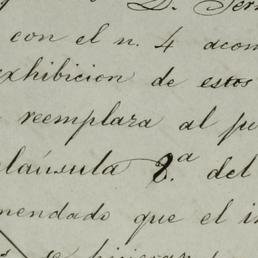 D. Fer
con el n. 4 acom
exhibicion de estos
reemplaza al ju
cláusula 8.ª del
mendado que el in